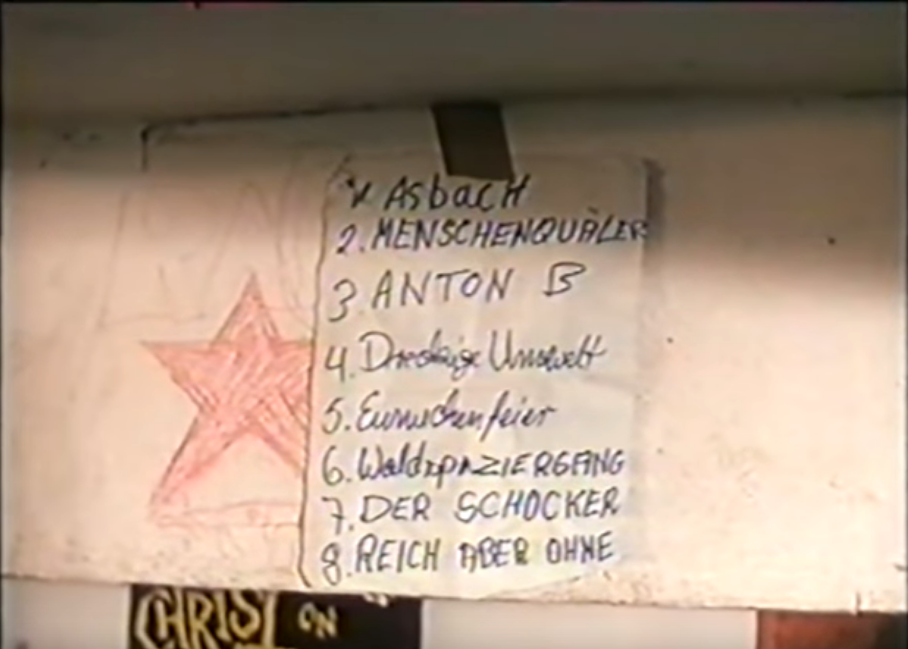 1. Asbach
2. MENSCHENQUÄLER
3. ANTON B
4. Dreckige Umwelt
5. Eunuchenfeier
6. WaldspAZIERGANG
7. DER SCHOCKER
8. REICH ABER OHNE
CHRIST ON